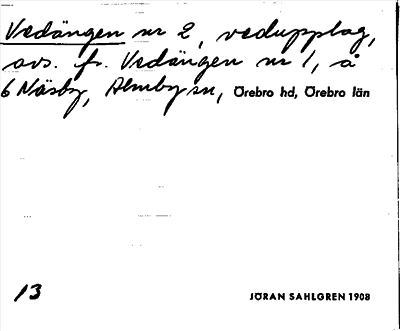 Vedängen nr 2, vedupplag,
avs. fr. Vedängen nr 1, å
6 Näsby, Almby sn, Örebro hd, Örebro län
13
JÖRAN SAHLGREN 1908